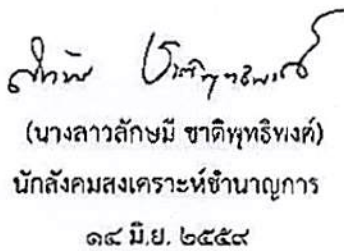 (นางสาวลักษมี ชาติพุทธิพงศ์)
นักสังคมสงเคราะห์ชำนาญการ
๑๔ มิ.ย. ๒๕๕๙